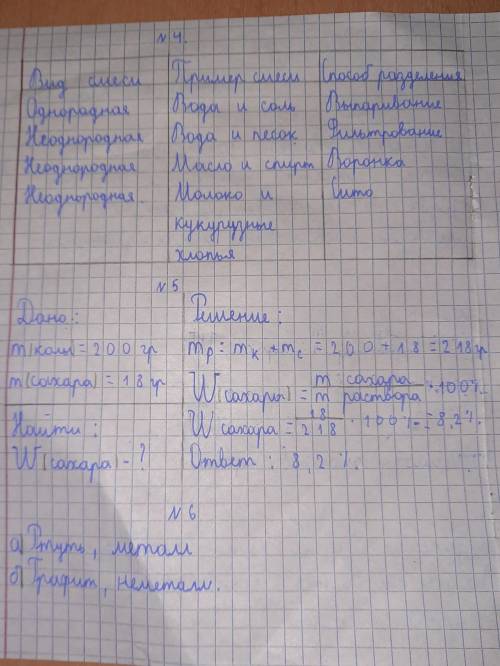 № 4.
Вид смеси Пример смеси Способ разделения
Однородная Вода и соль Выпаривание
Неоднородная Вода и песок Фильтрование
Неоднородная Масло и спирт Воронка
Неоднородная. Молоко и Сито
кукурузные
хлопья
№ 5
Дано: Решение:
m(колы) = 200 гр mр = mк + mс = 200 + 18 = 218 гр
m(сахара) = 18 гр W(сахара) = m сахара / m раствора · 100%
Найти: W сахара = 18/218 · 100% = 8,2%
W(сахара) - ? Ответ: 8,2%.
№ 6
а) Ртуть, металл
б) Графит, неметалл.